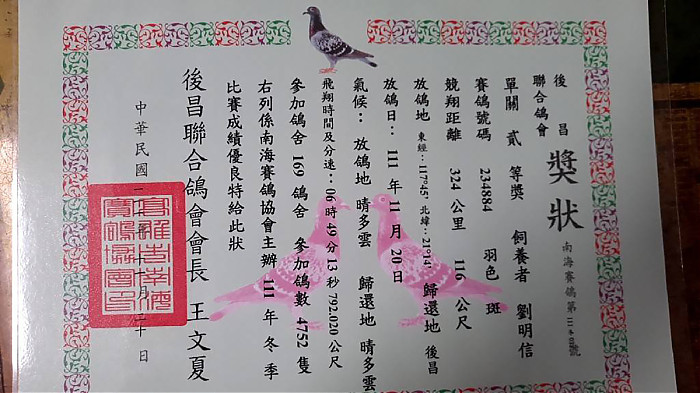 後昌
聯合鴿會 獎狀 南海賽鴿第
單關 貳 等獎 飼養者 劉明信
賽鴿號碼 234884 羽色 斑
競翔距離 324 公里 116 公尺
放鴿地 東經：117°45' 北緯：21°14' 歸還地 後昌
放鴿日： 111 年 11 月 20 日
氣候： 放鴿地 晴多雲 歸還地 晴多雲
飛翔時間及分速： 06 時 49 分 13 秒 792.020 公尺
參加鴿舍 169 鴿舍 參加鴿數 4752 隻
右列係南海賽鴿協會主辦 111 年 冬季
比賽成績優良特給此狀
後昌聯合鴿會會長 王文夏
中華民國一 十一月二十日